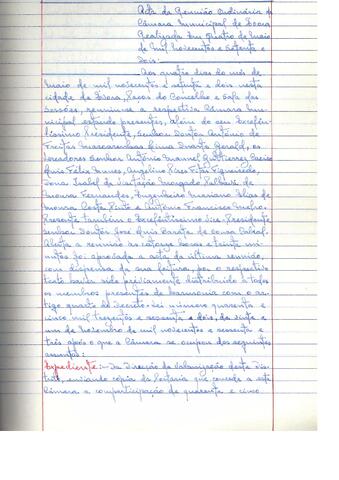 Acta da Reunião Ordinária da
Câmara Municipal de Évora
Realizada em quatro de Maio
de mil novecentos e setenta e
dois:
Aos quatro dias do mês de
Maio de mil novecentos e setenta e dois nesta
cidade de Évora, Paços do Concelho e Sala das
Sessões, reuniu-se a respectiva Câmara Mu-
nicipal estando presentes, além do seu Excelen-
tíssimo Presidente, Senhor Doutor António de
Freitas Mascarenhas Duarte Gerald, os
Vereadores Senhor António Manuel Gutierrez
Luís Félix Nunes, Angelino Pires Figueiredo,
Dona Isabel da Visitação Morgado
Moura Fernandes, Engenheiro Mariano Elias de
Moura Costa Pinto e António Francisco
Presente também o Excelentíssimo Vice-Presidente
Senhor Doutor José Luís Barata de Sousa Cabral.
Aberta a reunião às catorze horas e trinta mi-
nutos foi aprovada a acta da última reunião,
com dispensa da sua leitura, por o respectivo
texto haver sido préviamente distribuído a todos
os membros presentes de harmonia com o ar-
tigo quarto do Decreto-Lei número quarenta e
cinco mil trezentos e sessenta e dois, de vinte e
um de Novembro de mil novecentos e sessenta e
três após o que a Câmara se ocupou dos seguintes
assuntos:
Expediente:- Da Direcção de Urbanização deste Dis-
trito, enviando cópia da Portaria que concede a esta
Câmara a comparticipação de quarenta e cinco